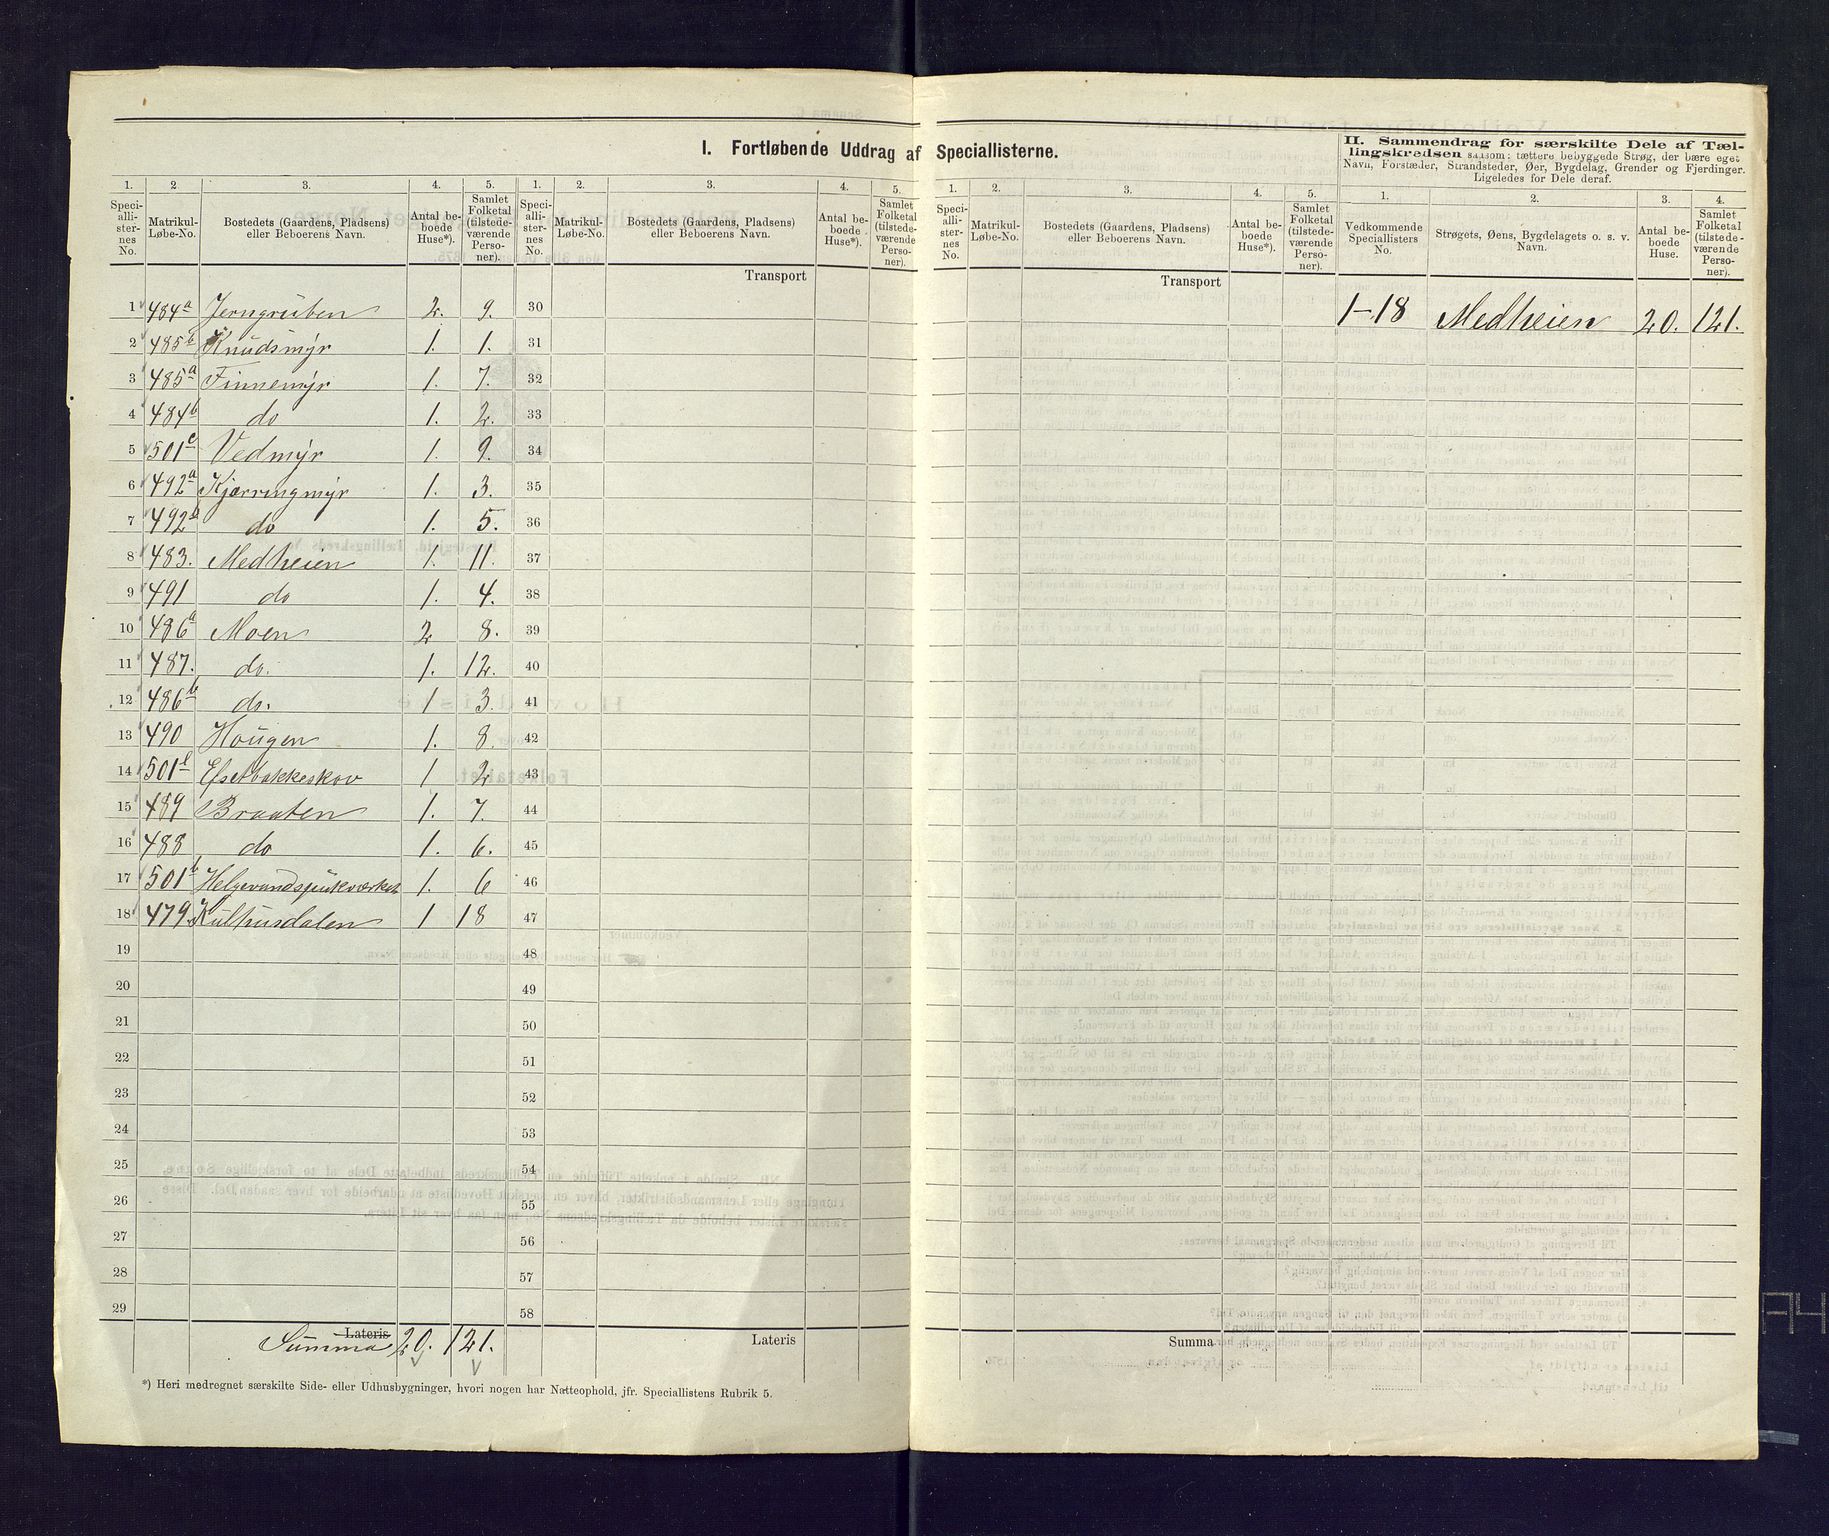 I. Fortløbende Uddrag af Speciallisterne.
1. 2. 3. 4. 5. 1. 2. 3. 4. 5.
Speciallisternes No. Matrikul-Løbe-No. Bostedets (Gaardens, Pladsens) eller Beboerens Navn. Antal beboede Huse*). Samlet Folketal (tilstedeværende Personer).
Speciallisternes No. Matrikul-Løbe-No. Bostedets (Gaardens, Pladsens) eller Beboerens Navn. Antal beboede Huse*). Samlet Folketal (tilstedeværende Personer).
Transport
1 484a Jerngruben 2. 9. 30
2 485b Knudsmyr 1. 1. 31
3 485a Finnemyr 1. 7. 32
4 484b do 1. 2. 33
5 501c Vedmyr 1. 9. 34
6 492a Kjærringmyr 1. 3. 35
7 492 do 1. 5. 36
8 483. Medheien 1. 11. 37
9 491 do 1. 4. 38
10 486a Moen 2 8. 39
11 487. do. 1. 12. 40
12 486b do. 1 3. 41
13 490 Hougen 1. 8. 42
14 501 Efsetbakkeskov 1 2 43
15 489 Braaten 1. 7. 44
16 488 do 1. 6. 45
17 501b Helgevandspukværket 1. 6 46
18 479. Kulhusdalen 1 18 47
19 48
20 49
21 50
22 51
23 52
24 53
25 54
26 55
27 56
28 57
29 58
Lateris
Summa 20. 121.
Lateris
*) Heri medregnet særskilte Side- eller Udhusbygninger, hvori nogen har Natteophold, jfr. Speciallistens Rubrik 5.
1. 2. 3. 4. 5.
Speciallisternes No. Matrikul-Løbe-No. Bostedets (Gaardens, Pladsens) eller Beboerens Navn. Antal beboede Huse*). Samlet Folketal (tilstedeværende Personer).
Transport
Summa
II. Sammendrag for særskilte Dele af Tæl-
lingskredsen saasom: tættere bebyggede Strøg, der bære eget
Navn, Forstæder, Strandsteder, Øer, Bygdelag, Grender og Fjerdinger.
Ligeledes for Dele deraf.
1. 2. 3. 4.
Vedkommende Speciallisters No. Strøgets, Øens, Bygdelagets o. s. v. Navn. Antal beboede Huse. Samlet Folketal (tilstedeværende Personer).
1-18 Medheien 20. 121.